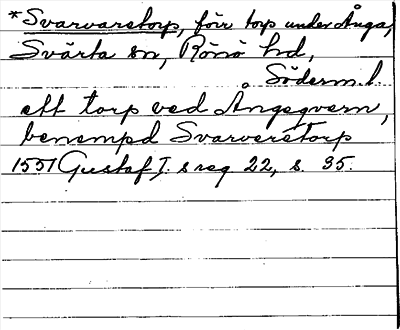 *Svarvarstorp, förr torp under Ånga,
Svärta sn, Rönö hd,
Söderm. l.
ett torp ved Ångeqvern,
benempd Svarverstorp
1551 Gustaf I. s reg 22, s. 35.